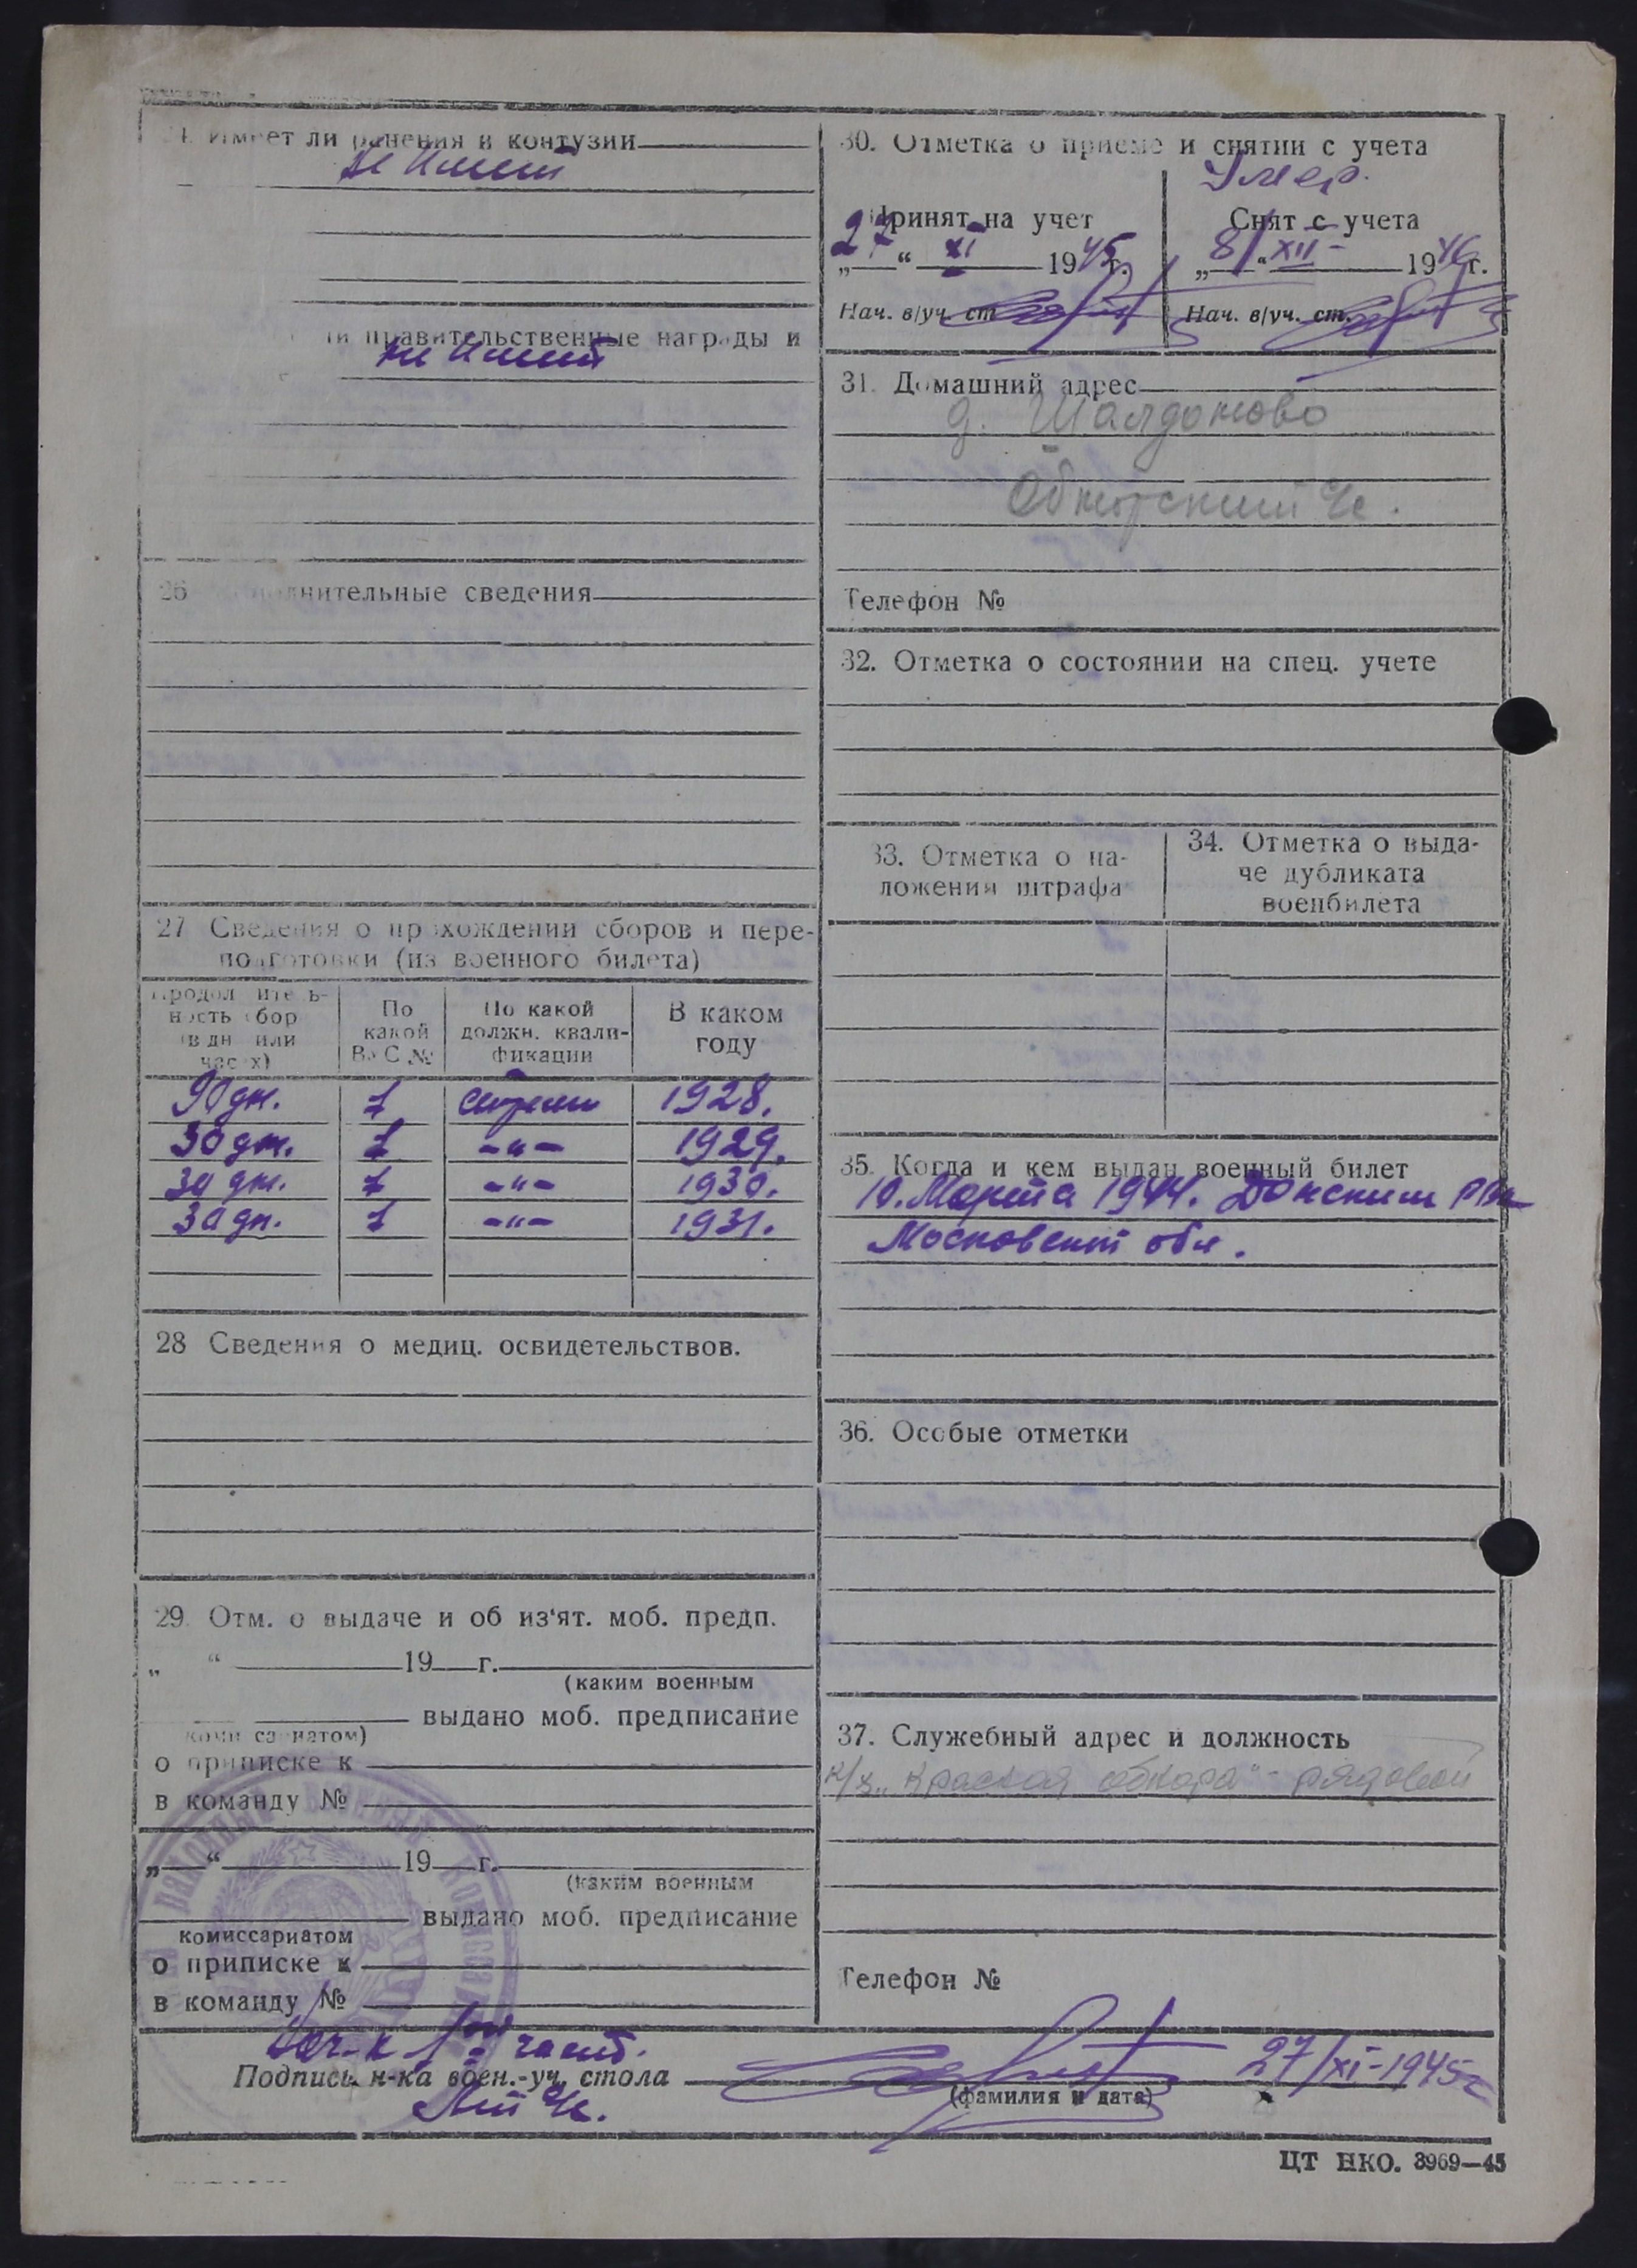 Имеет ли ранения и контузии
не имеет
ли правительственные награды и
не имеет
26 сведения
27 Сведения о прохождении сборов и пере-
подготовки (из военного билета)
Продолжитель-
ность сбор
(в дн или
часах)
По
какой
ВУС №
По какой
должн. квали-
фикации
В каком
году
90 дн. 1 стрелк 1928.
30 дн. 1 -"- 1929.
30 дн. 1 -"- 1930.
30 дн. 1 -"- 1931.
28 Сведения о медиц. освидетельствов.
29. Отм. о выдаче и об из'ят. моб. предп.
„ “ 19 г.
(каким военным
выдано моб. предписание
комиссариатом)
о приписке к
в команду №
„ “ 19 г.
(каким военным
выдано моб. предписание
комиссариатом
о приписке к
в команду №
30. Отметка о приеме и снятии с учета
Умер.
Принят на учет
„27“ XI 1945г.
Нач. в/уч. ст
Снят с учета
„8“ XII 1946г.
Нач. в/уч. ст.
31. Домашний адрес
д. Шалдоново
Телефон №
32. Отметка о состоянии на спец. учете
33. Отметка о на-
ложении штрафа
34. Отметка о выда-
че дубликата
военбилета
35. Когда и кем выдан военный билет
10. Марта 1944. Донским РВК
Московской обл.
36. Особые отметки
37. Служебный адрес и должность
к/з „Красная обнора" - рядовой
Телефон №
Нач-к 1ой части.
Подпись н-ка воен.-уч. стола
27/XI-1945г
(фамилия и дата)
ЦТ НКО. 3969—45